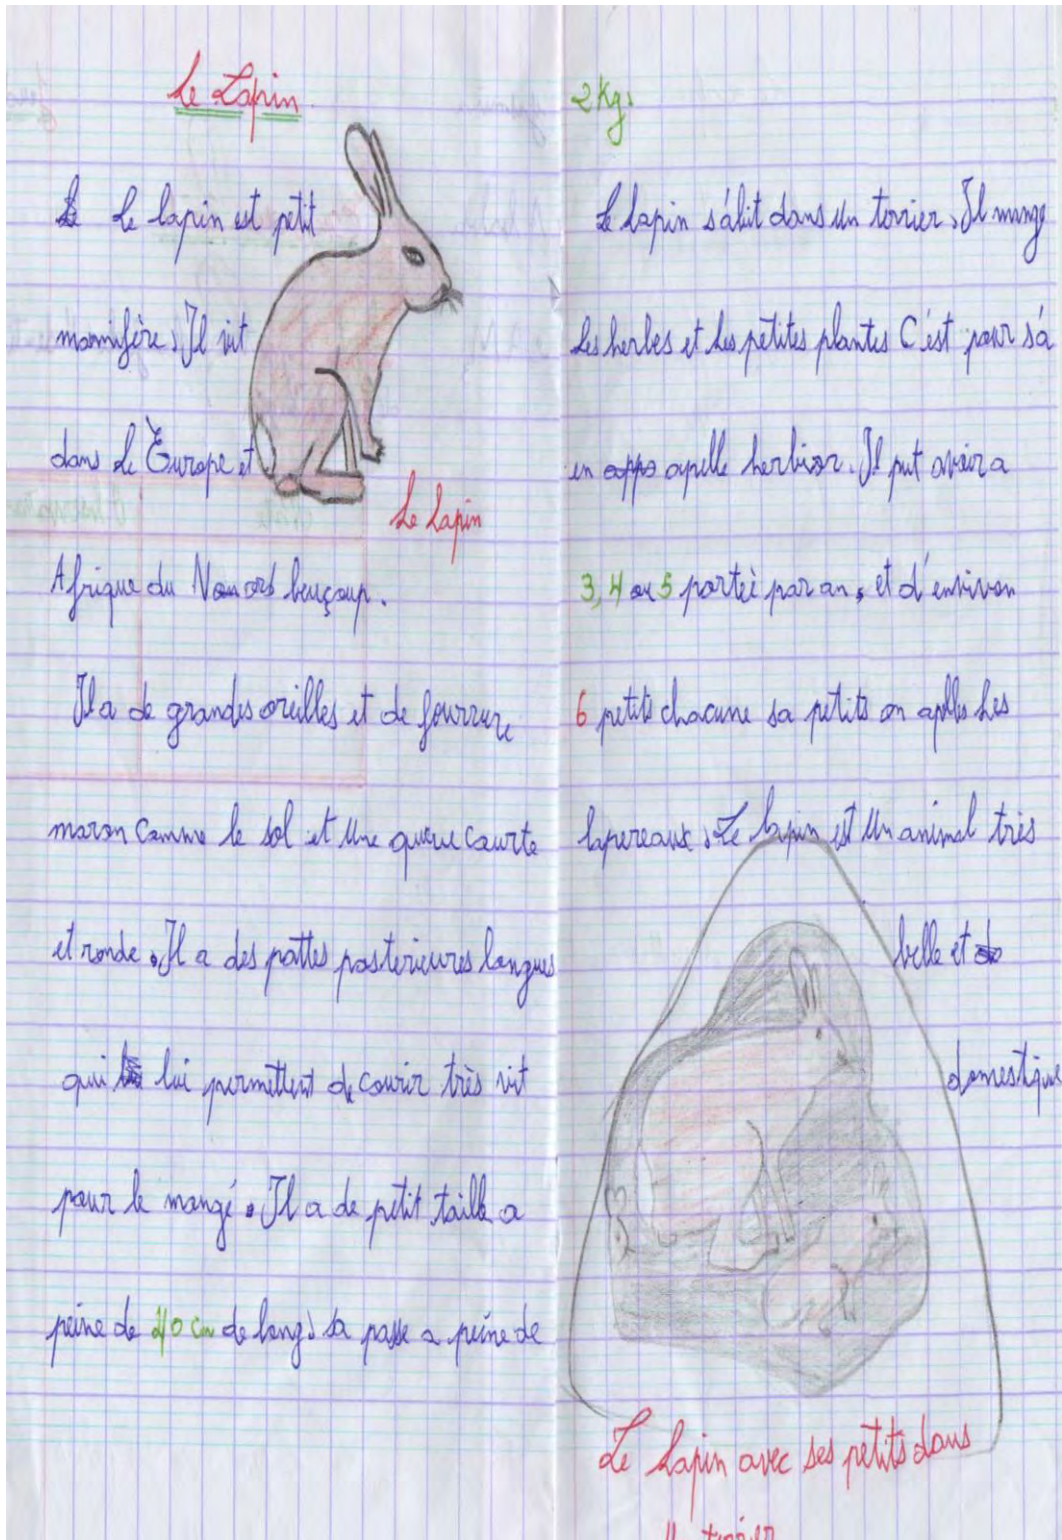 Le Lapin
Le lapin est petit
mamifère. Il vit
dans le Europe et
Le Lapin
Afrique du Nord beuçoup.
Il a de grandes oreilles et de fourrure
maron comme le sol et une queue courte
et ronde. Il a des pattes posterieures longues
qui lui permettent de courir très vit
pour le mangé. Il a de petit taille a
peine de 40 cm de long, sa passe a peine de
2 Kg.
Le Lapin s'abit dans un terrier. Il mange
Les herbes et Les petites plantes C'est pour s'a
en apelle herbivor. Il put avoir a
3, 4 ou 5 porteè par an, et d'environ
6 petits chacune sa petits on aplles Les
lapereaux. Le lapin est un animal très
belle et
domestique
Le Lapin avec ses petits dans
terrier